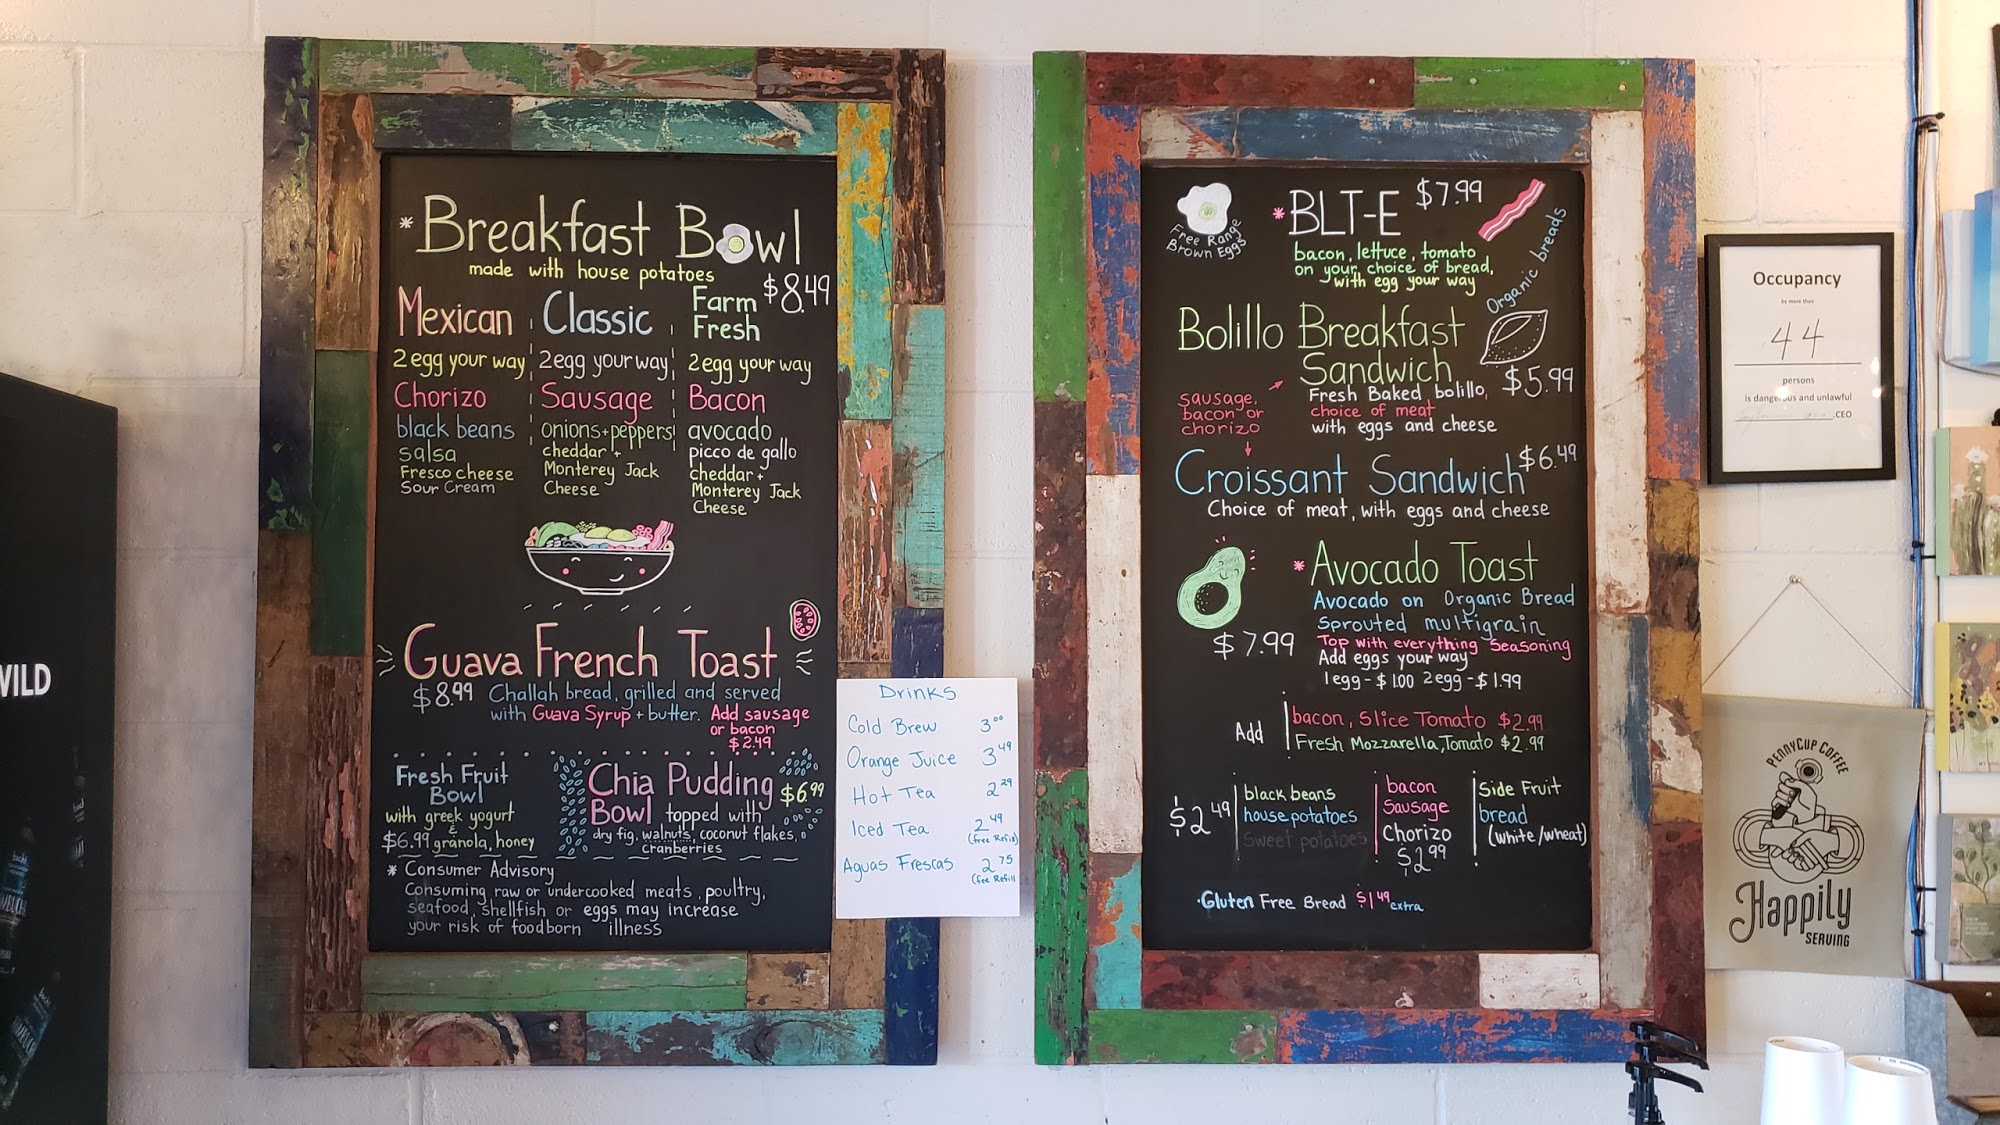 * Breakfast Bowl
made with house potatoes
$8.49
Mexican
2egg your way
Chorizo
black beans
salsa
Fresco cheese
Sour Cream
Classic
2egg your way
Sausage
onions+peppers
cheddar +
Monterey Jack
Cheese
Farm
Fresh
2egg your way
Bacon
avocado
picco de gallo
cheddar +
Monterey Jack
Cheese
Guava French Toast
$8.99 Challah bread, grilled and served
with Guava Syrup + butter. Add sausage
or bacon
$2.49
Fresh Fruit
Bowl
with greek yogurt
&
$6.99 granola, honey
Chia Pudding
$6.99
Bowl topped with
dry fig, walnuts, coconut flakes,
cranberries
* Consumer Advisory
Consuming raw or undercooked meats, poultry,
seafood, shellfish or eggs may increase
your risk of foodborn illness
Drinks
Cold Brew 3.00
Orange Juice 3.49
Hot Tea 2.29
Iced Tea 2.49
(free Refill)
Aguas Frescas 2.75
(fee Refill
Free Range
Brown Eggs
* BLT-E $7.99
bacon, lettuce, tomato
on your choice of bread,
with egg your way
Organic breads
Bolillo Breakfast
Sandwich
$5.99
Fresh Baked bolillo,
choice of meat
with eggs and cheese
sausage,
bacon or
chorizo
Croissant Sandwich $6.49
Choice of meat, with eggs and cheese
* Avocado Toast
Avocado on Organic Bread
Sprouted multigrain
$7.99
Top with everything Seasoning
Add eggs your way
1egg - $1.00 2egg - $1.99
Add
bacon, Slice Tomato $2.99
Fresh Mozzarella, Tomato $2.99
$2.49
black beans
house potatoes
Sweet potatoes
bacon
Sausage
Chorizo
$2.99
Side Fruit
bread
(white/wheat)
·Gluten Free Bread $1.49 extra
Occupancy
by more than
44
persons
is dangerous and unlawful
,CEO
PennyCup Coffee
Happily
Serving
WILD